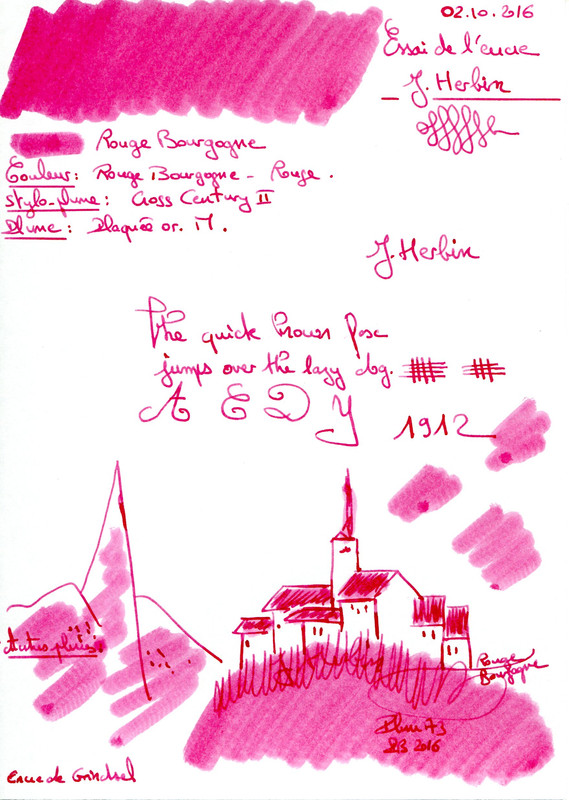 02.10.2016
Essai de l'encre
J. Herbin
Rouge Bourgogne
Couleur: Rouge Bourgogne - Rouge.
Stylo-plume: Cross Century II
Plume: Plaquée or. M.
J. Herbin
The quick brown fox
jumps over the lazy dog.
A E D Y
1912
Autres plumes
J. Herbin
Rouge
Bourgogne
Plume 73
2016